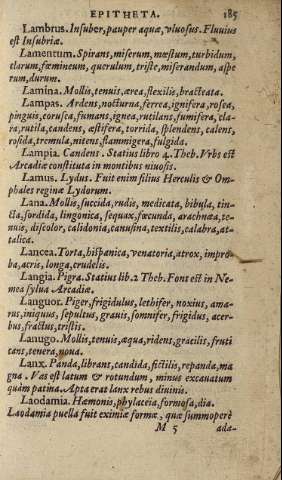 EPITHETA. 185
Lambrus. Insuber, pauper aquæ, vluosus. Fluuius
est Insubriæ.
Lamentum. Spirans, miserum, mœstum, turbidum,
clarum, fœmineum, querulum, triste, miserandum, aspe
rum, durum.
Lamina. Mollis, tenuis, ærea, flexilis, bracteata.
Lampas. Ardens, nocturna, ferrea, ignifera, rosea,
pinguis, corusca, fumans, ignea, rutilans, fumifera, cla-
ra, rutila, candens, æstifera, torrida, splendens, calens,
rosida, tremula, nitens, flammigera, fulgida.
Lampia. Candens. Statius libro 4. Theb. Vrbs est
Arcadiæ constituta in montibus niuosis.
Lamus. Lydus. Fuit enim filius Herculis & Om-
phales reginæ Lydorum.
Lana. Mollis, succida, rudis, medicata, bibula, tin-
cta, sordida, lingonica, sequax, fœcunda, arachnæa, te-
nuis, discolor, calidonia, canusina, textilis, calabra, at-
talica.
Lancea. Torta, hispanica, venatoria, atrox, impro-
ba, acris, longa, crudelis.
Langia. Pigra. Statius lib. 2 Theb. Font est in Ne-
mea sylua Arcadiæ.
Languor. Piger, frigidulus, lethifer, noxius, ama-
rus, iniquus, sepultus, grauis, somnifer, frigidus, acer-
bus, fractus, tristis.
Lanugo. Mollis, tenuis, æqua, ridens, gracilis, fruti
cans, tenera, noua.
Lanx. Panda, librans, candida, fictilis, repanda, ma
gna. Vas est latum & rotundum, minus excauatum
quàm patina. Apta erat lanx rebus diuinis.
Laodamia. Hæmonis, phylaceia, formosa, dia.
Laodamia puella fuit eximiæ formæ, quæ summoperè
M 5 ada-